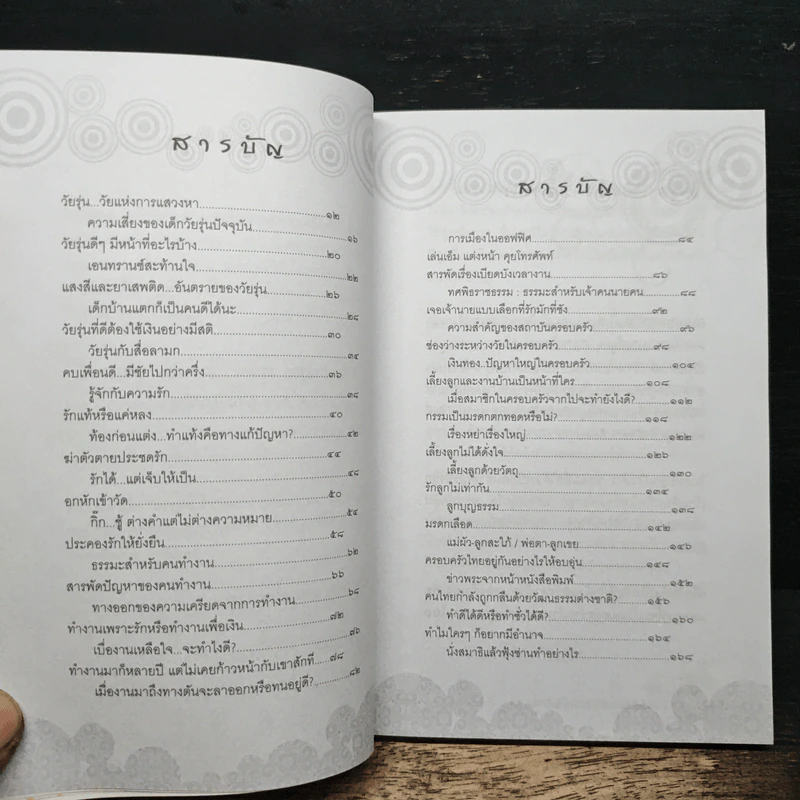 สารบัญ
วัยรุ่น...วัยแห่งการแสวงหา
ความเสี่ยงของเด็กวัยรุ่นปัจจุบัน ๑๒
วัยรุ่นดีๆ มีหน้าที่อะไรบ้าง ๑๖
เอนทรานซ์สะท้านใจ ๒๐
แสงสีและยาเสพติด...อันตรายของวัยรุ่น ๒๒
เด็กบ้านแตกก็เป็นคนดีได้นะ ๒๖
วัยรุ่นที่ดีต้องใช้เงินอย่างมีสติ ๒๘
วัยรุ่นกับสื่อลามก ๓๐
คบเพื่อนดี...มีชัยไปกว่าครึ่ง ๓๔
รู้จักกับความรัก ๓๖
รักแท้หรือแค่หลง ๓๘
ท้องก่อนแต่ง...ทำแท้งคือทางแก้ปัญหา? ๔๐
ฆ่าตัวตายประชดรัก ๔๒
รักได้...แต่เจ็บให้เป็น ๔๔
อกหักเข้าวัด ๔๘
กิ๊ก...ชู้ ต่างคำแต่ไม่ต่างความหมาย ๕๐
ประคองรักให้ยั่งยืน ๕๔
ธรรมะสำหรับคนทำงาน ๕๘
สารพัดปัญหาของคนทำงาน ๖๒
ทางออกของความเครียดจากการทำงาน ๖๖
ทำงานเพราะรักหรือทำงานเพื่อเงิน ๖๘
เบื่องานเหลือใจ...จะทำไงดี? ๗๒
ทำงานมาก็หลายปี แต่ไม่เคยก้าวหน้ากับเขาสักที ๗๖
เมื่องานมาถึงทางตันจะลาออกหรือทนอยู่ดี? ๗๘
๘๒
สารบัญ
การเมืองในออฟฟิศ ๘๔
เล่นเอ็ม แต่งหน้า คุยโทรศัพท์
สารพัดเรื่องเบียดบังเวลางาน ๘๖
ทศพิธราชธรรม : ธรรมะสำหรับเจ้าคนนายคน ๘๘
เจอเจ้านายแบบเลือกที่รักมักที่ชัง ๙๒
ความสำคัญของสถาบันครอบครัว ๙๖
ช่องว่างระหว่างวัยในครอบครัว ๙๘
เงินทอง..ปัญหาใหญ่ในครอบครัว ๑๐๔
เลี้ยงลูกและงานบ้านเป็นหน้าที่ใคร ๑๐๘
เมื่อสมาชิกในครอบครัวจากไปจะทำยังไงดี? ๑๑๒
กรรมเป็นมรดกตกทอดหรือไม่? ๑๑๘
เรื่องหย่าเรื่องใหญ่ ๑๒๒
เลี้ยงลูกไม่ได้ดั่งใจ ๑๒๖
เลี้ยงลูกด้วยวัตถุ ๑๓๐
รักลูกไม่เท่ากัน ๑๓๔
ลูกบุญธรรม ๑๓๘
มรดกเลือด ๑๔๒
แม่ผัว-ลูกสะใภ้ / พ่อตา-ลูกเขย ๑๔๖
ครอบครัวไทยอยู่กันอย่างไรให้อบอุ่น ๑๔๘
ข่าวพระจากหน้าหนังสือพิมพ์ ๑๕๒
คนไทยกำลังถูกกลืนด้วยวัฒนธรรมต่างชาติ? ๑๕๖
ทำดีได้ดีหรือทำชั่วได้ดี? ๑๖๐
ทำไมใครๆ ก็อยากมีอำนาจ ๑๖๔
นั่งสมาธิแล้วฟุ้งซ่านทำอย่างไร ๑๖๘